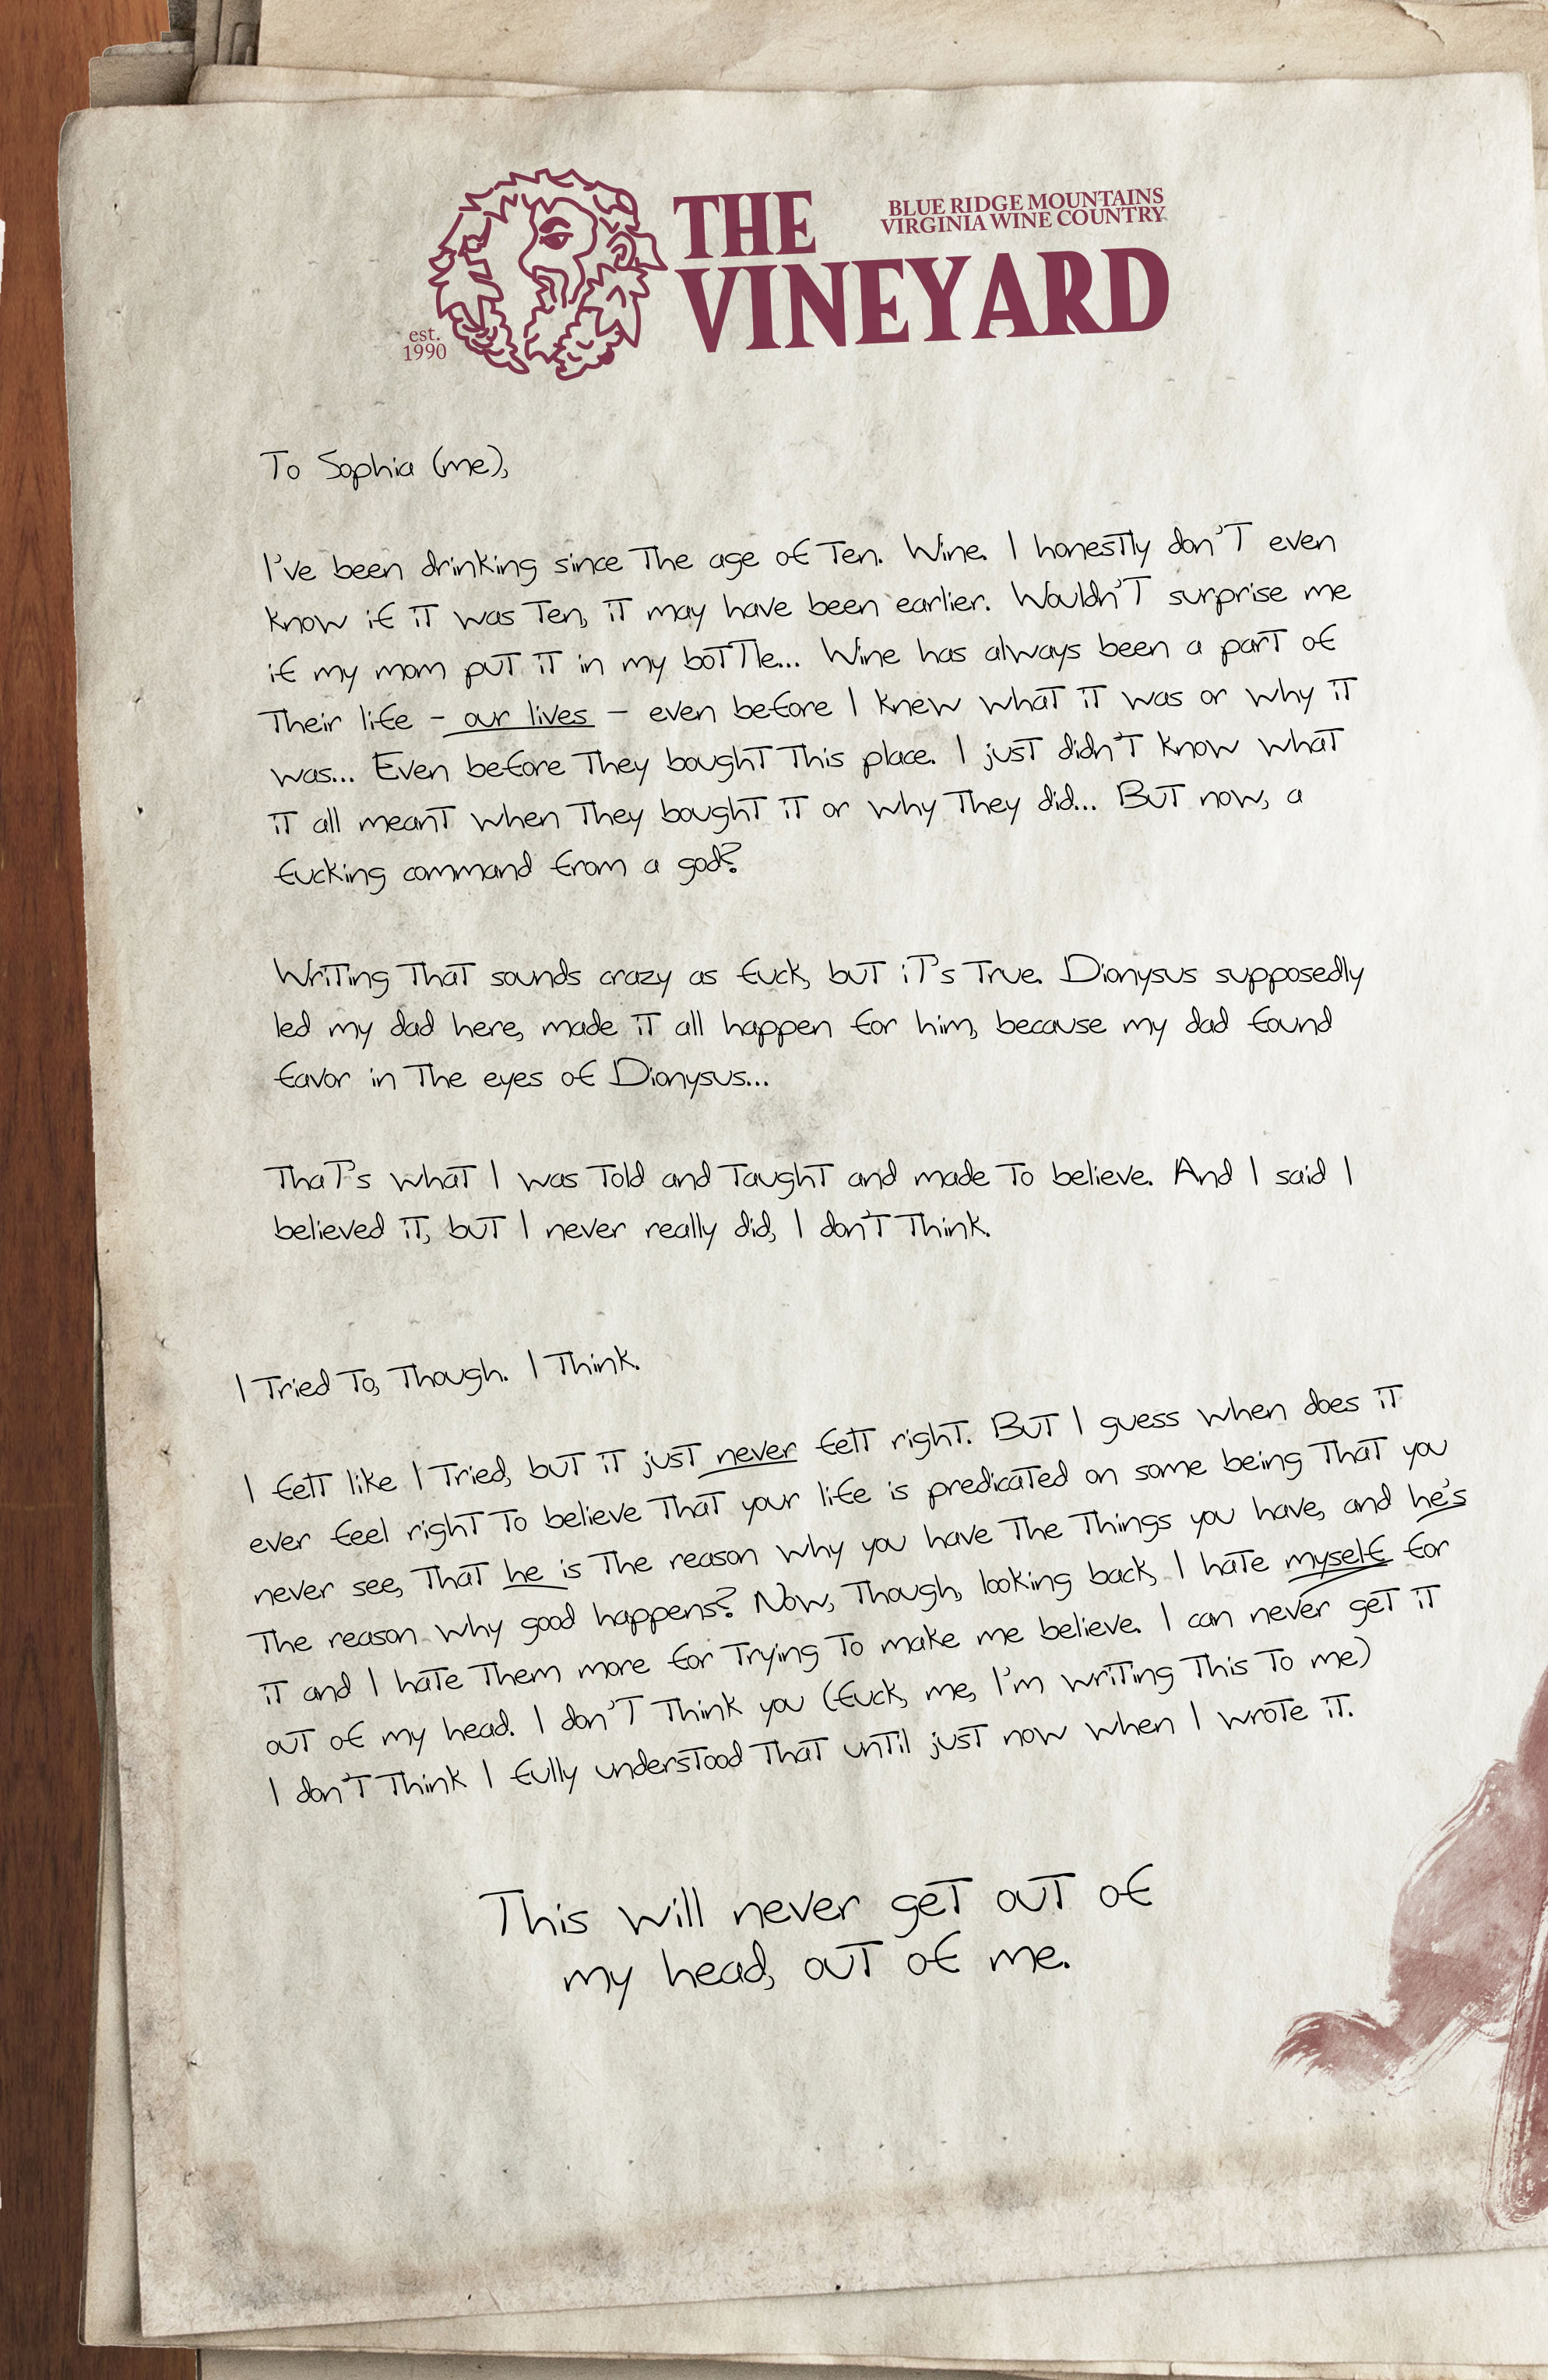 THE
BLUE RIDGE MOUNTAINS
VIRGINIA WINE COUNTRY
VINEYARD
est.
1990
To Sophia (me),
I've been drinking since the age of ten. Wine. I honestly don't even
know if it was ten, it may have been earlier. Wouldn't surprise me
if my mom put it in my bottle... Wine has always been a part of
their life - our lives - even before I knew what it was or why it
was... Even before they bought this place. I just didn't know what
it all meant when they bought it or why they did... But now, a
fucking command from a god?
Writing that sounds crazy as fuck, but it's true. Dionysus supposedly
led my dad here, made it all happen for him, because my dad found
favor in the eyes of Dionysus...
That's what I was told and taught and made to believe. And I said I
believed it, but I never really did, I don't think.
I tried to, though. I think.
I felt like I tried, but it just never felt right. But I guess when does it
ever feel right to believe that your life is predicated on some being that you
never see, that he is the reason why you have the things you have, and he's
the reason why good happens? Now, though, looking back, I hate myself for
it and I hate them more for trying to make me believe. I can never get it
out of my head. I don't think you (fuck, me, I'm writing this to me)
I don't think I fully understood that until just now when I wrote it.
This will never get out of
my head, out of me.